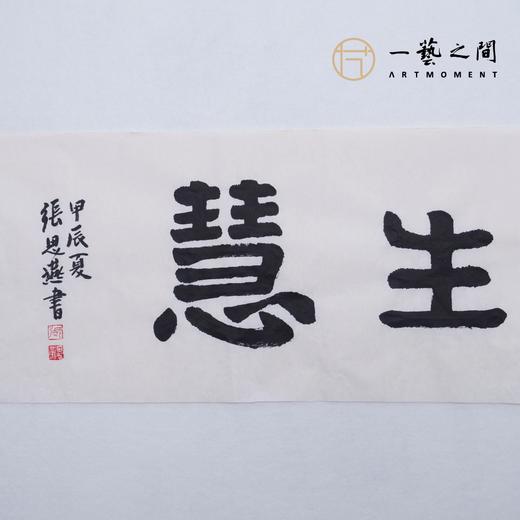 一藝之間
ARTMOMENT
生慧
甲辰夏
張思燕書